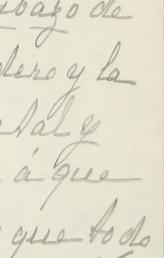 abazo de
dero y la
tal y
á que
que todo